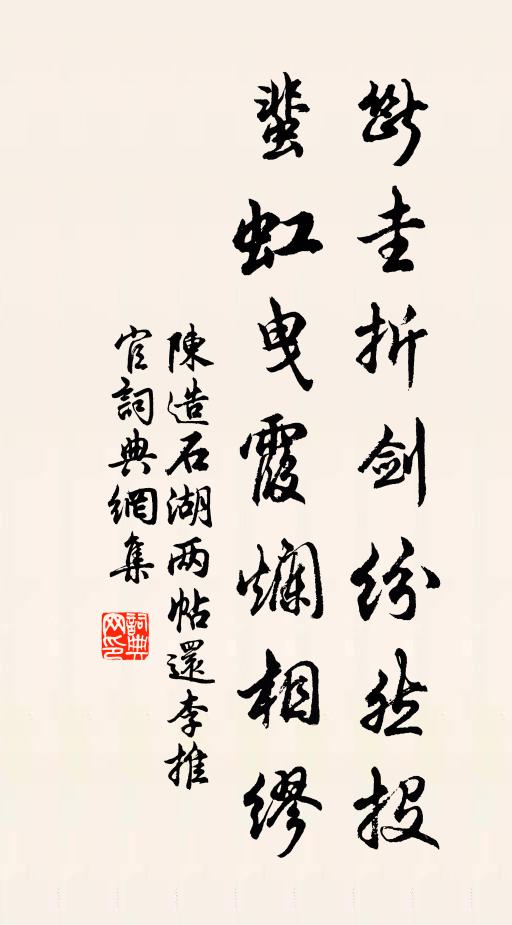 斷圭折劍紛然投
蜚虹曳霞爛相繆
陳造石湖两帖還李推
官詞典網集
詞典网印